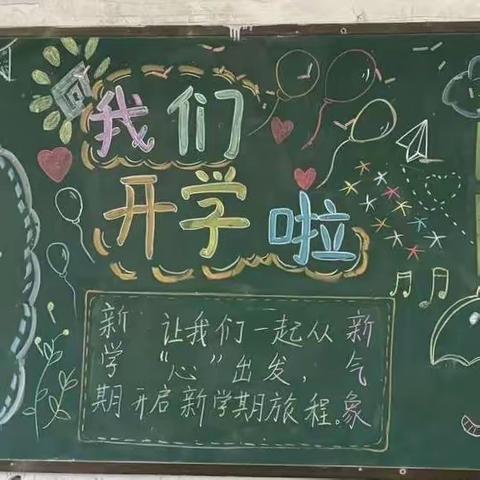 我们
开学啦
新学期
让我们一起从
“心”出发，
开启新学期旅程。
新气象